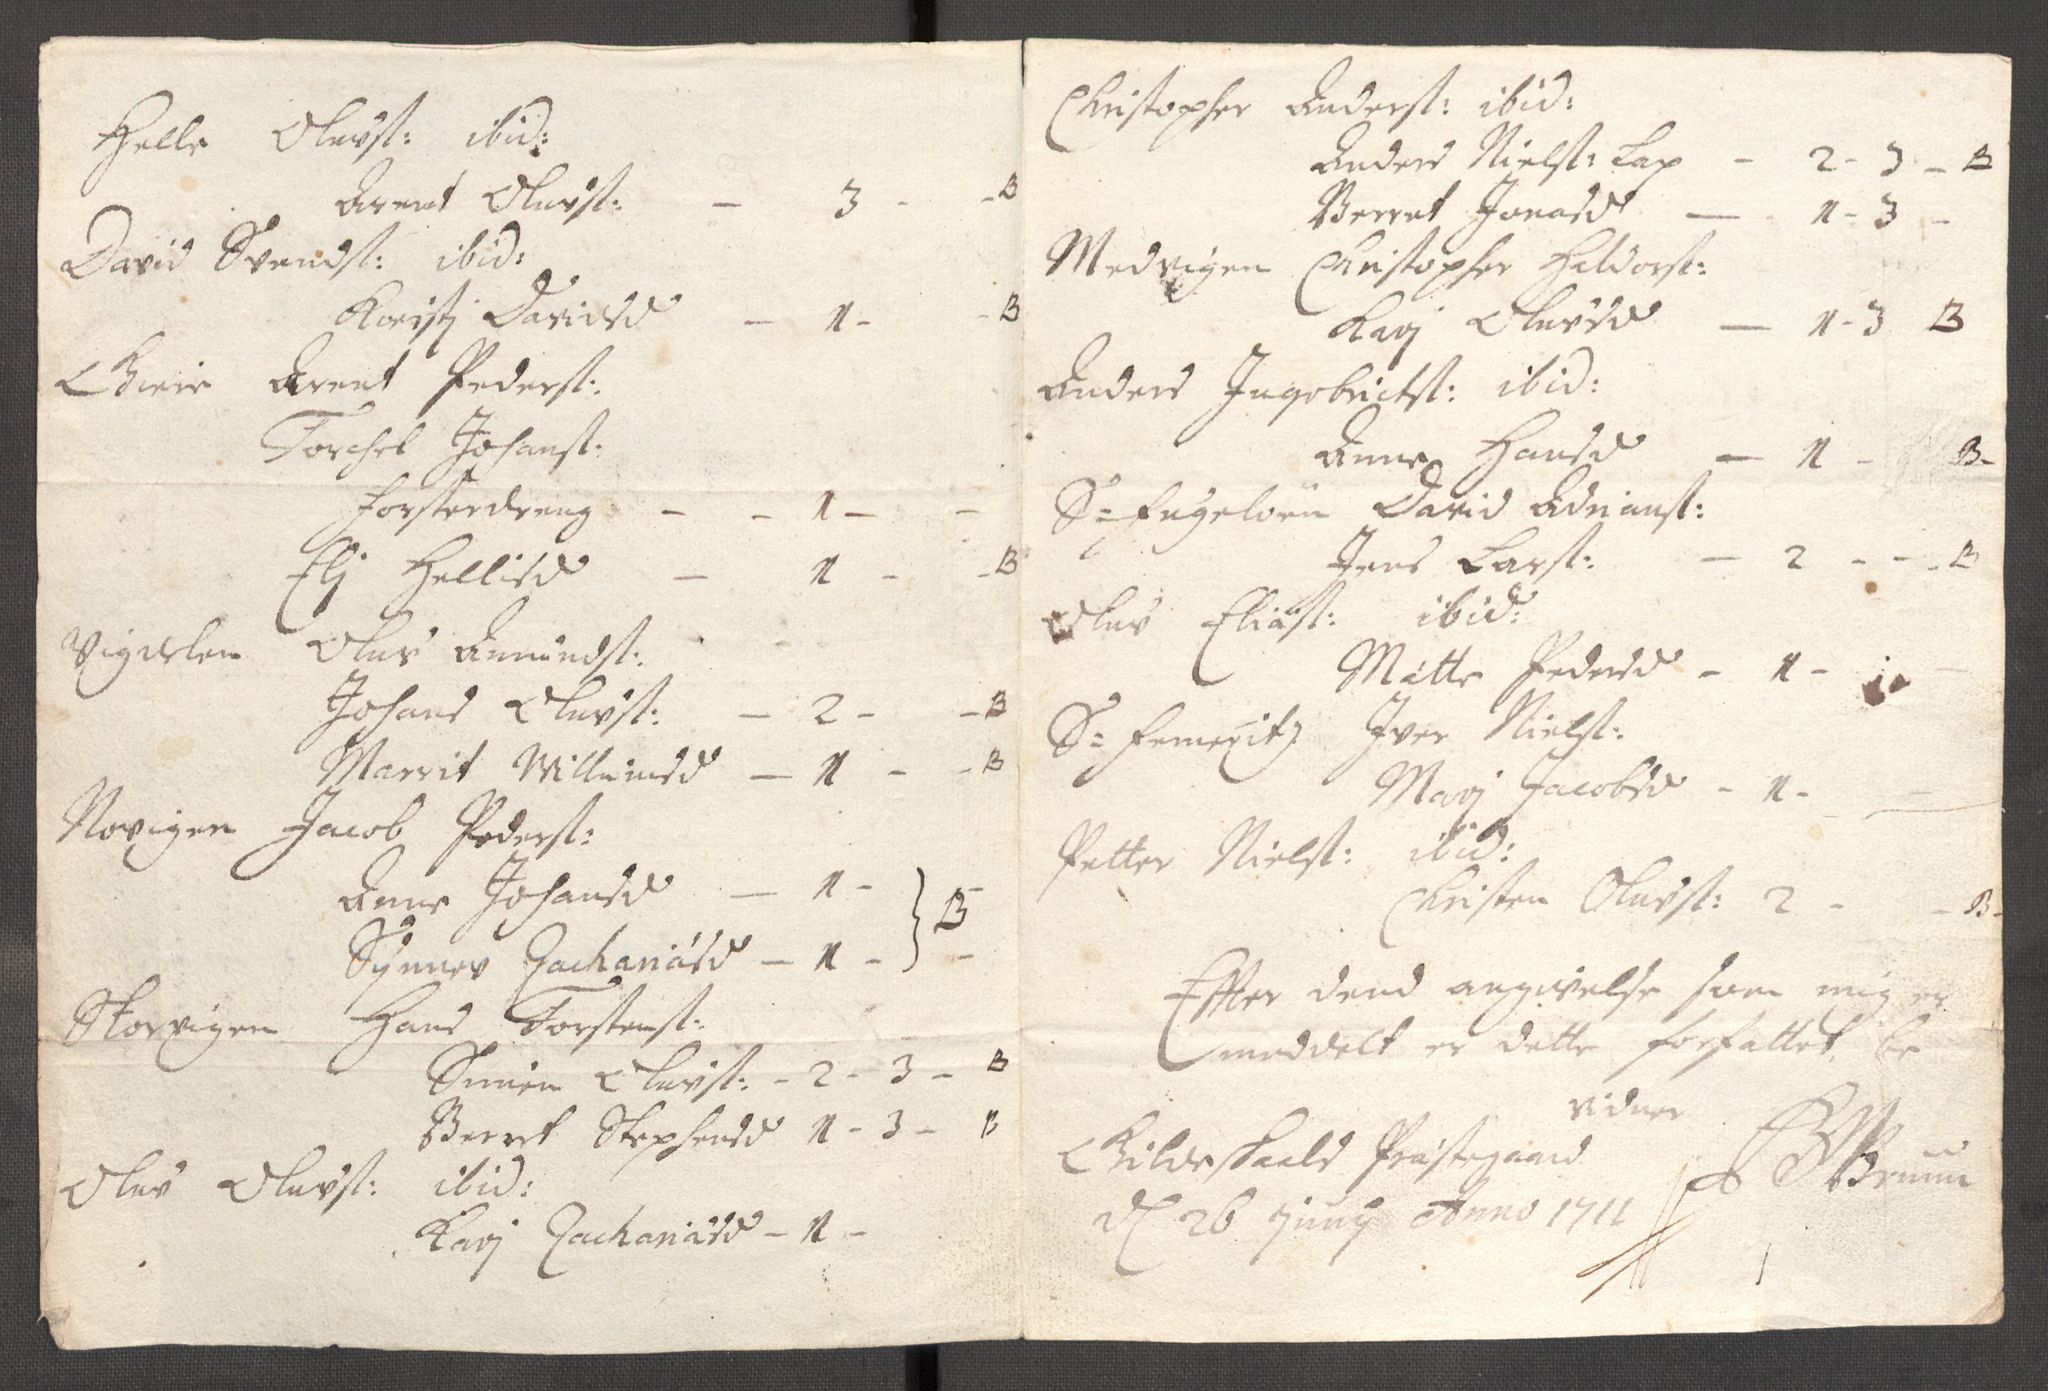 Helle Oluvst: ibid:
Arent Oluvst: – 3 - - B
David Svendst: ibid:
Koristj Davidsd – 1 - - B
Arent Pederst:
Torchel Johanst:
forsterdreng – – 1 – –
Elj Hellisd – 1 – – B
Vigdelen Oluv Amundst:
Johans Oluvst: – 2 – – B
Marrit Willumsd – 1 – – B
Novigen Jacob Pederst:
Anne Johansd – 1 – } B
Synnev Zachariasd – 1 – –
Storvigen Hans Torstenst:
Simen Oluvst: – 2 – 3 – B
Berret Stephensd 1 – 3 – B
Oluv Oluvst: ibid:
Karj Zachariasd – 1 –
Christopher Anderst: ibid:
Anders Nielst: Lap – 2 – 3 – B
Berret Jonasd – 1 – 3 –
Medvigen Christopher Haldorst:
Karj Oluvsd – 1 – 3 B
Anders Ingebrictst: ibid:
Anne Hansd – 1 – B –
S= fugeløen David Adrianst:
Jens Larst: – 2 – – B
Oluv Eliast: ibid:
Mätte Pedersd – 1 – –
S= Iver Nielst:
Marj Jacobsd – 1 – –
Petter Nielst: ibid:
Christen Oluvst: 2 – – B –
Effter dend angivelse som mig er
meddelt er dette forfattet, be
vidner
Gildeskaals Præstegaard
d 26 Junij Anno 1711
Bruun